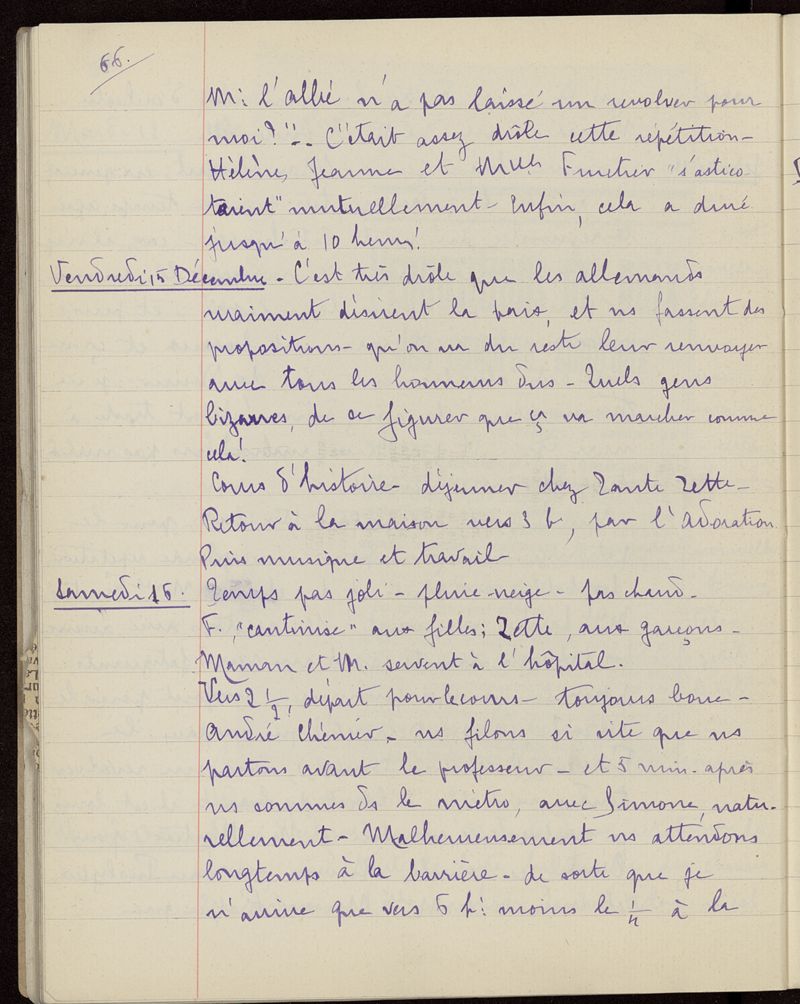 66.
Mr l'abbé n'a pas laissé un revolver pour
moi?"-. C'était assez drôle cette répétition-
Hélène, Jeanne et Melle "s'astico-
taient" mutuellement- Enfin, cela a duré
jusqu'à 10 heures!
Vendredi 15 Décembre - C'est très drôle que les allemands
vraiment désirent la paix, et ns fassent des
propositions- qu'on va du reste leur renvoyer
avec tous les honneurs dus - Quels gens
bizarres, de se figurer que ça va marcher comme
cela!
Cours d'histoire- déjeuner chez Tante Zette-
Retour à la maison vers 3 h, par l'Adoration.
Puis musique et travail-
Samedi 16. Temps pas joli - pluie-neige - pas chaud-
F. "cantinise" aux filles; Zette, aux garçons-
Maman et M. servent à l'hôpital.
Vers 2 1/2, départ pour le cours- toujours boue-
André Chénier- ns filons si vite que ns
partons avant le professeur- et 5 min. après
ns sommes ds le métro, avec Simone, natu-
rellement- Malheureusement ns attendons
longtemps à la barrière- de sorte que je
n'arrive que vers 6 h: moins le 1/4 à la